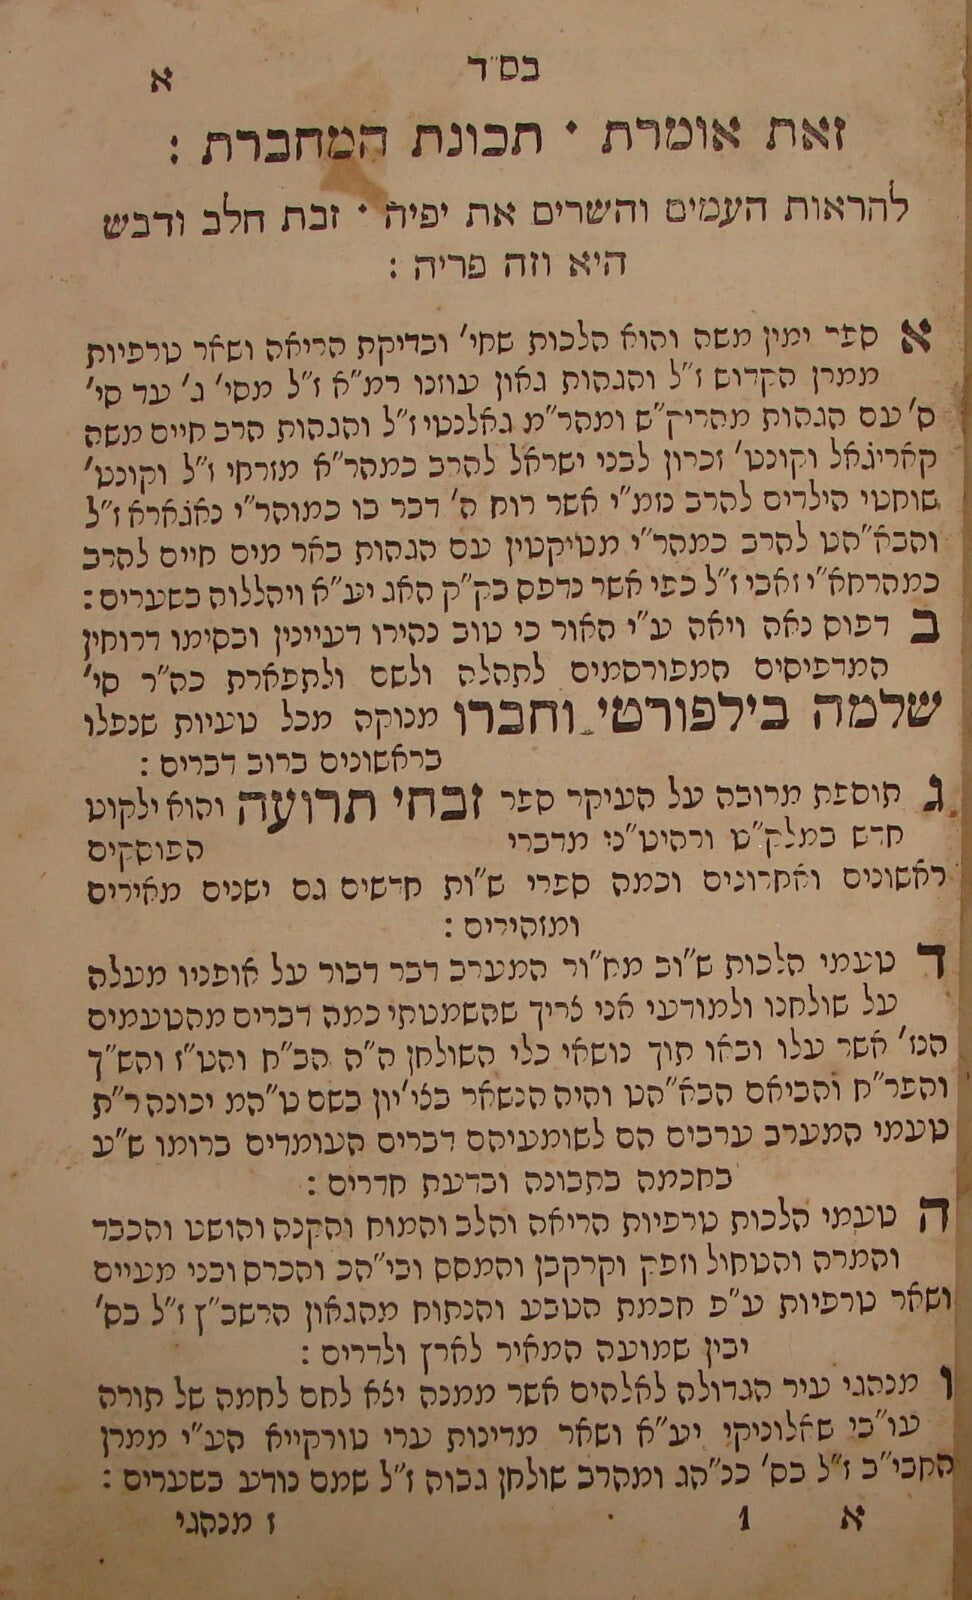 בס״ד
א
זאת אומרת • תכונת המחברת :
להראות העמים והשרים את יפיה • זבת חלב ודבש
היא וזה פריה :
א ספר ימין משה והוא הלכות שחי׳ ובדיקת הריאה ושאר טרפיות
ממרן הקדוש ז״ל והגהות גאון עוזנו רמ״א ז״ל מסי׳ ג׳ עד סי׳
ס׳ עם הגהות מהריק״ש ומהר״מ גאלנטי ז״ל והגהות הרב חיים משה
קאריגאל וקונט׳ זכרון לבני ישראל להרב כמהר״א מזרחי ז״ל וקונט׳
שוחטי הילדים להרב כמ״י אשר רוח ה׳ דבר בו כמוהר״י נאג׳ארא ז״ל
והבא״הט להרב כמהר״י מטיקטין עם הגהות באר מים חיים להרב
כמהרחא״י זאבי ז״ל כפי אשר נדפס בק״ק האג יע״א ויהללוה בשערים :
ב דפוס נאה ויאה ע״י האור כי טוב נהירו דעיינין ובסימו דרוחין
המדפיסים המפורסמים לתהלה ולשם ולתפארת כה״ר סי׳
שלמה בילפורטי וחברו מנוקה מכל טעיות שנפלו
בראשונים ברוב דברים :
ג תוספת מרובה על העיקר ספר זבחי תרועה והוא ילקוט
חדש במלק״ט ורהיט״ני מדברי הפוסקים
ראשונים ואחרונים וכמה ספרי ש״ות חדשים גם ישנים מאירים
ומזהירים :
ד טעמי הלכות ש״וב מח״ור המערב דבר דבור על אופניו מעלה
על שולחנו ולמודעי אני צריך שהשמטתי כמה דברים מהטעמים
הנז׳ אשר עלו ובאו תוך נושאי כלי השולחן ה״ה הב״ח והט״ז והש״ך
והפר״ח והביאם הבא״הט והיה הנשאר בצ׳יון בשם ט״המ יכונה ר״ת
טעמי המערב ערבים הם לשומעיהם דברים העומדים ברומו ש״ע
בחכמה בתבונה ובדעת חדרים :
ה טעמי הלכות טרפיות הריאה והלב והמוח והקנה והושט והכבד
והמרה והטחול וזפק וקרקבן והמסס ובי״הכ והכרס ובני מעיים
ושאר טרפיות ע״פ חכמת הטבע והנתוח מהגאון הרשב״ץ ז״ל בס׳
יבין שמועה המאיר לארץ ולדרים :
ו מנהגי עיר הגדולה לאלהים אשר ממנה יצא לחם לחמה של תורה
עו״בי שאלוניקי יע״א ושאר מדינות ערי טורקייא הע״י ממרן
החבי״ב ז״ל בס׳ ככ״הג ומהרב שולחן גבוה ז״ל שמם נודע בשערים :
א 1 ז מנהגי